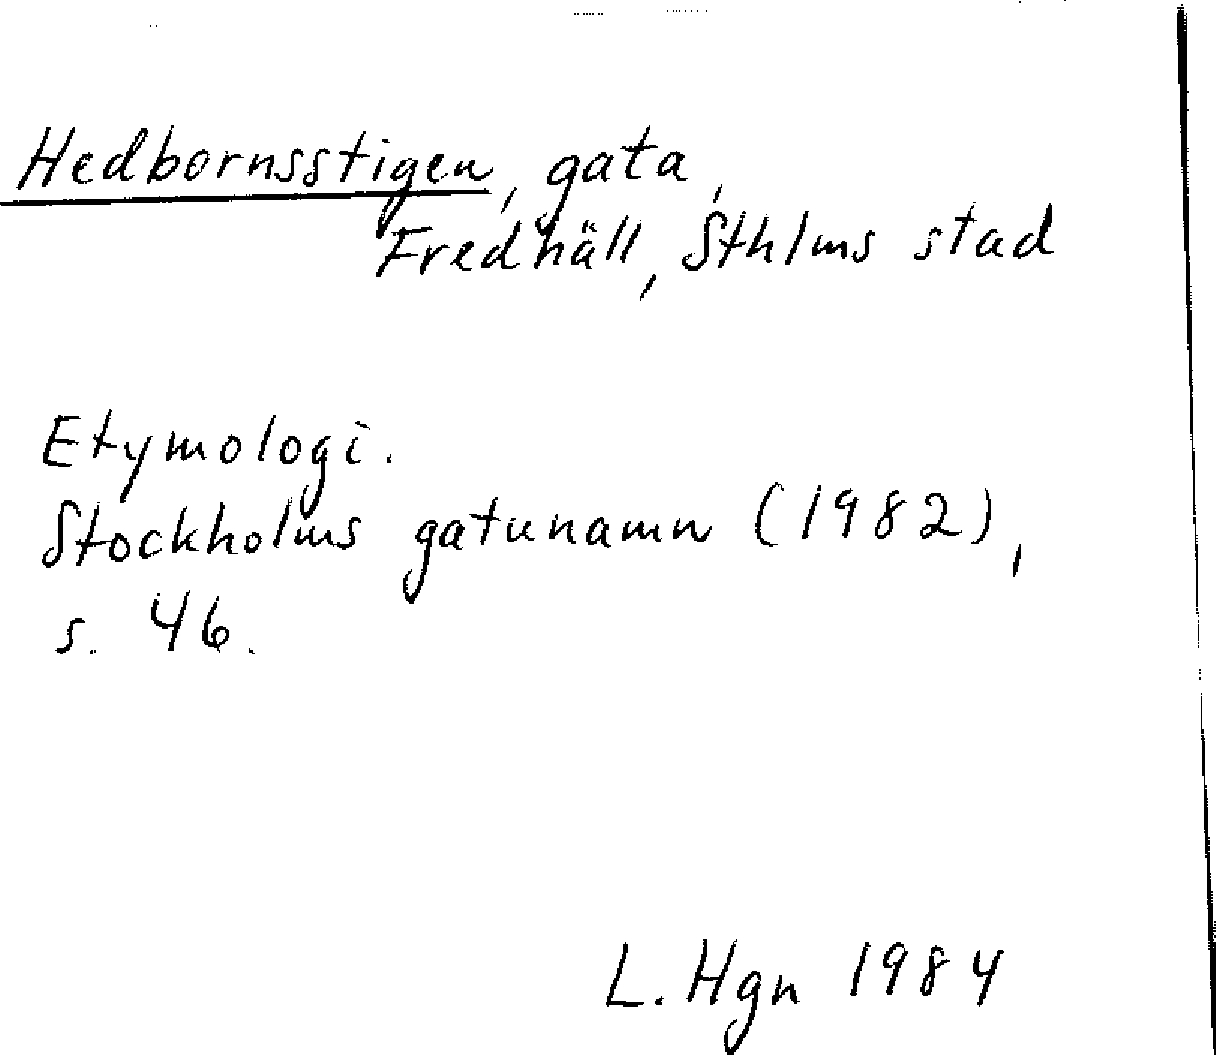 Hedbornsstigen, gata,
Fredhäll, Sthlms stad
Etymologi.
Stockholms gatunamn (1982),
s. 46.
L. Hgn 1984